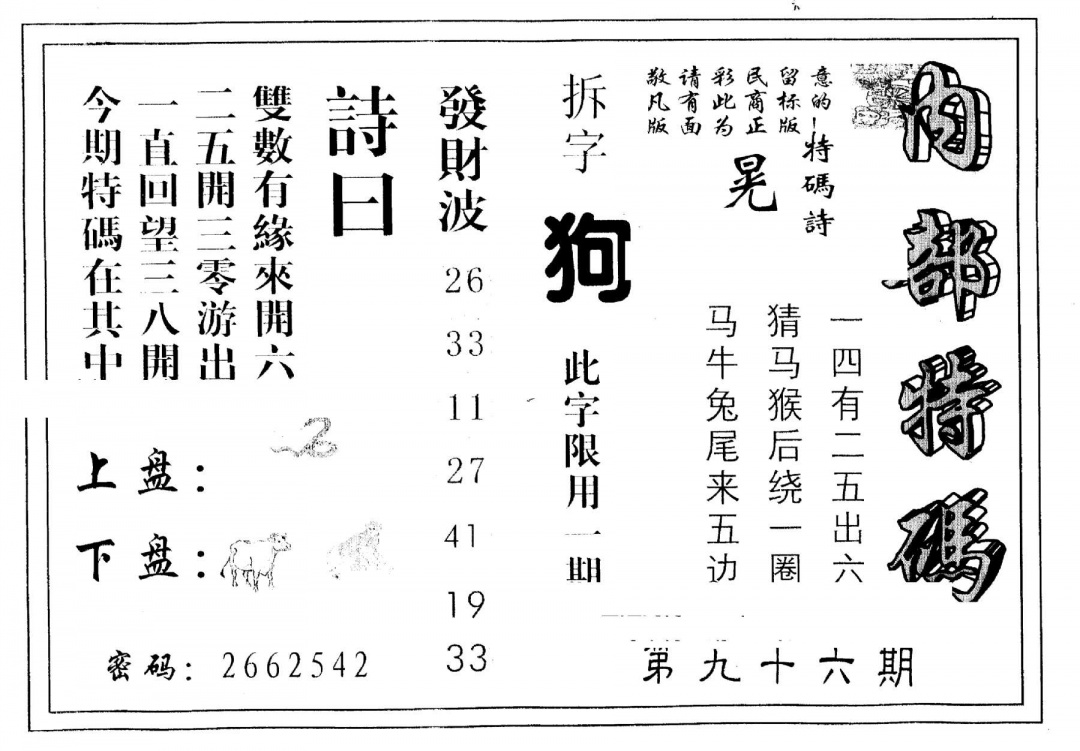 内部特碼
意的-特碼詩
留标版
民商正
彩此为
请有面
敬凡版
晃
一四有二五出六
猜马猴后绕一圈
马牛兔尾来五边
第九十六期
拆字
狗
此字限用一期
發財波
26
33
11
27
41
19
33
詩曰
雙數有緣來開六
二五開三零游出
一直回望三八開
今期特碼在其中
上盘：
下盘：
密码：2662542